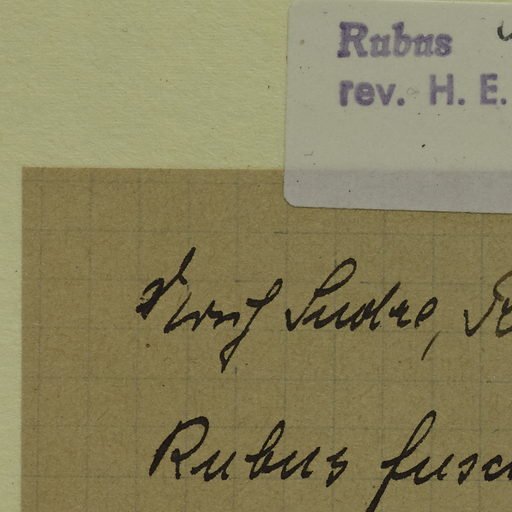 Rubus
rev. H. E.
Nach Sudre,
Rubus fusc